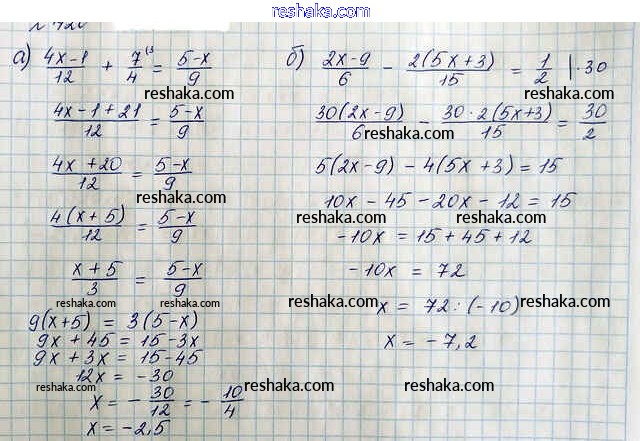 reshaka.com
а) (4x-1)/12 + 7/4 (3 = (5-x)/9
reshaka.com
(4x-1+21)/12 = (5-x)/9
reshaka.com
(4x+20)/12 = (5-x)/9
reshaka.com
4(x+5)/12 = (5-x)/9
reshaka.com
(x+5)/3 = (5-x)/9
reshaka.com reshaka.com
9(x+5) = 3(5-x)
9x + 45 = 15-3x
9x + 3x = 15-45
12x = -30
reshaka.com
x = - 30/12 = - 10/4
x = -2,5
reshaka.com
б) (2x-9)/6 - 2(5x+3)/15 = 1/2 |·30
reshaka.com reshaka.com
30(2x-9)/6 - 30·2(5x+3)/15 = 30/2
reshaka.com
5(2x-9) - 4(5x+3) = 15
reshaka.com
10x - 45 - 20x - 12 = 15
reshaka.com reshaka.com
-10x = 15+45+12
-10x = 72
reshaka.com reshaka.com
x = 72:(-10)
x = -7,2
reshaka.com reshaka.com reshaka.com
reshaka.com